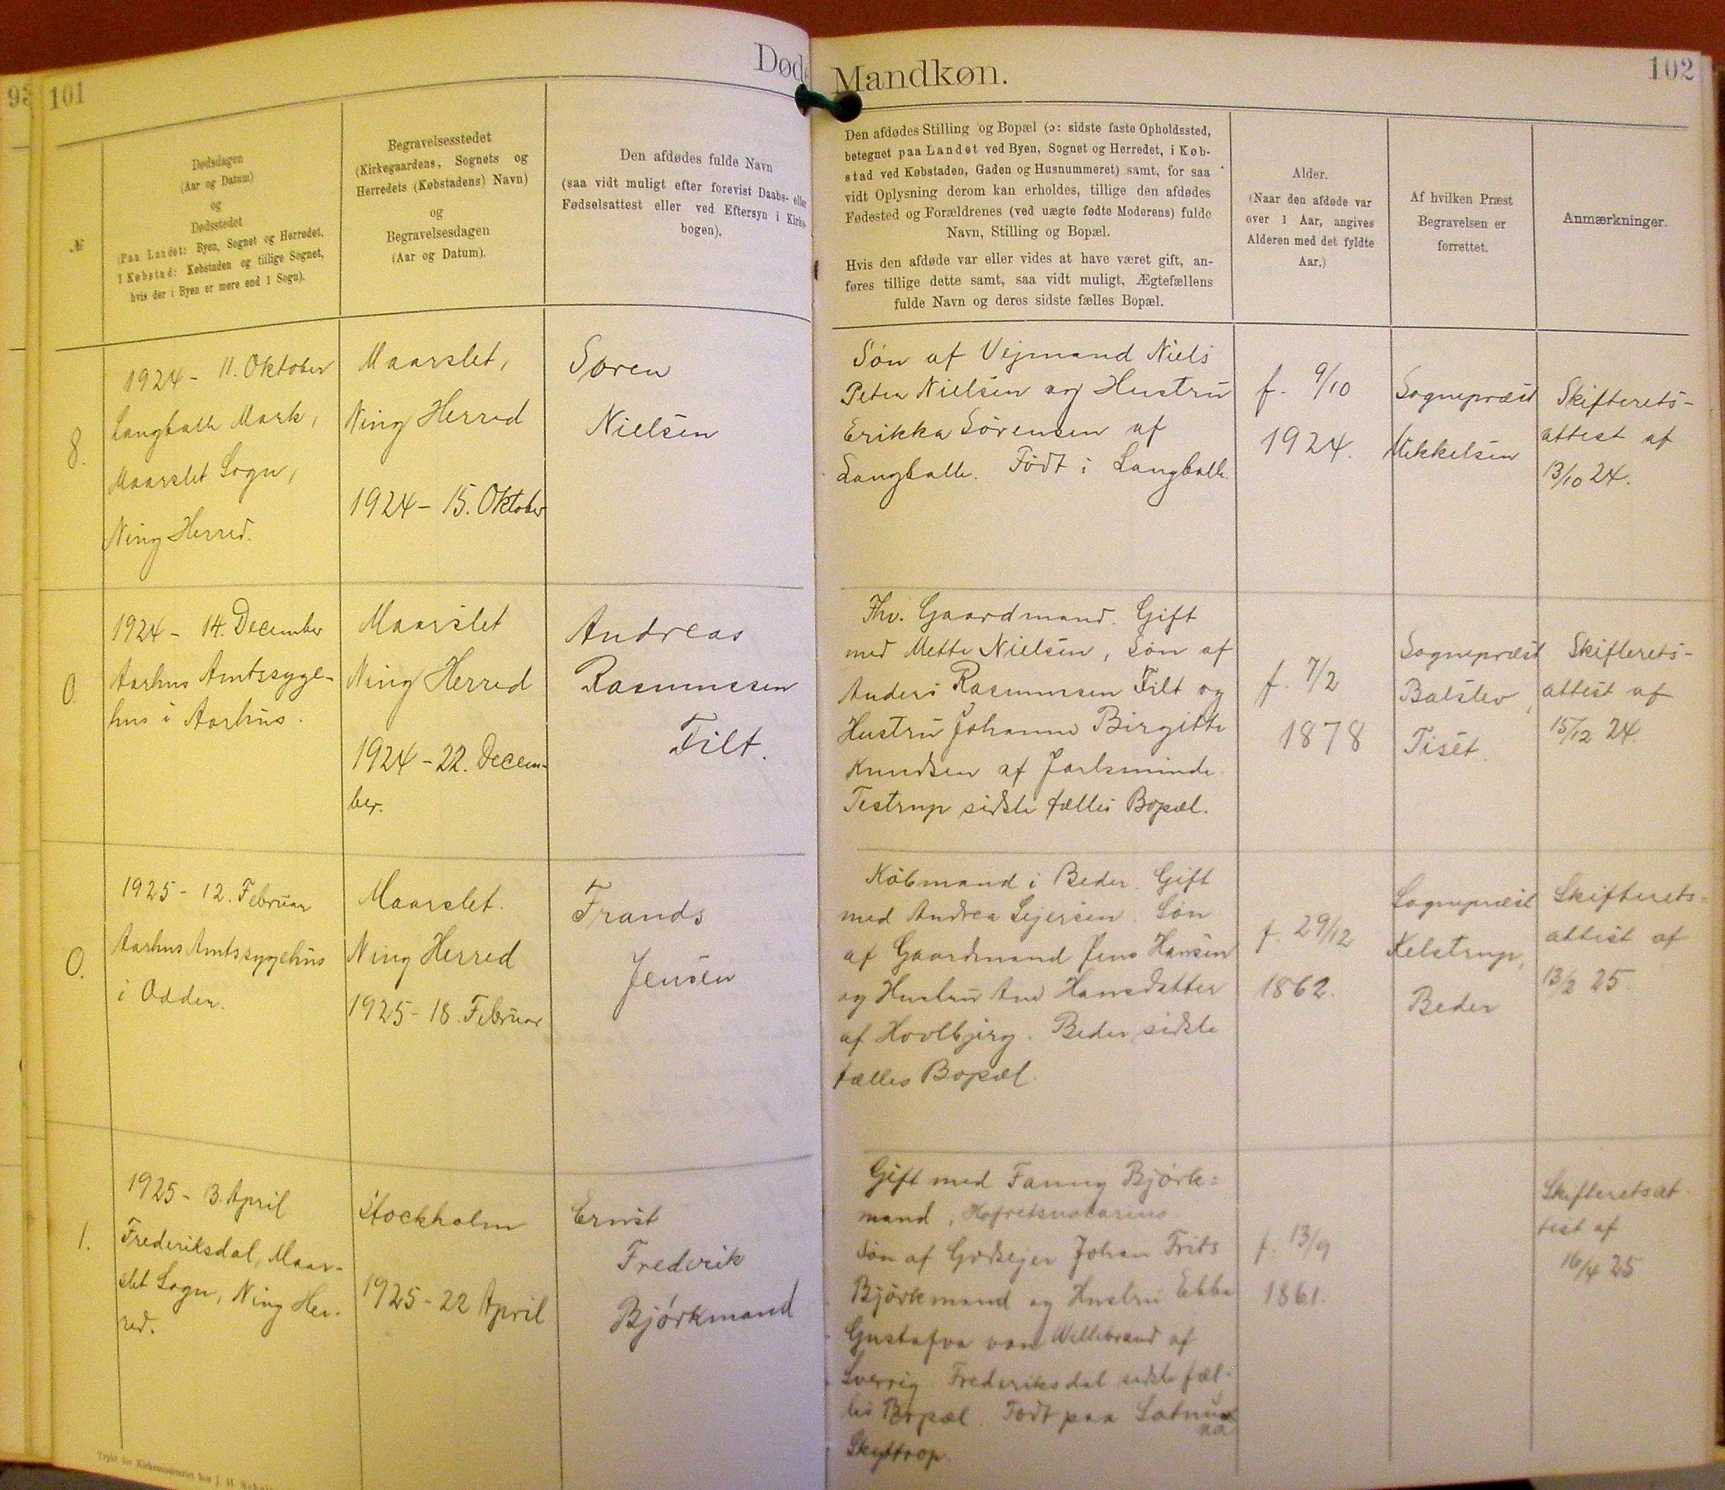 93
101
Død
Mandkøn.
102
№
Dødsdagen
(Aar og Datum)
og
Dødsstedet
(Paa Landet: Byen, Sognet og Herredet.
I Købstad: Købstaden og tillige Sognet,
hvis der i Byen er mere end 1 Sogn).
Begravelsesstedet
(Kirkegaardens, Sognets og
Herredets (Købstadens) Navn)
og
Begravelsesdagen
(Aar og Datum).
Den afdødes fulde Navn
(saa vidt muligt efter forevist Daabs- eller
Fødselsattest eller ved Eftersyn i Kirke-
bogen).
Den afdødes Stilling og Bopæl (ɔ: sidste faste Opholdssted,
betegnet paa Landet ved Byen, Sognet og Herredet, i Køb-
stad ved Købstaden, Gaden og Husnummeret) samt, for saa
vidt Oplysning derom kan erholdes, tillige den afdødes
Fødested og Forældrenes (ved uægte fødte Moderens) fulde
Navn, Stilling og Bopæl.
Hvis den afdøde var eller vides at have været gift, an-
føres tillige dette samt, saa vidt muligt, Ægtefællens
fulde Navn og deres sidste fælles Bopæl.
Alder.
(Naar den afdøde var
over 1 Aar, angives
Alderen med det fyldte
Aar.)
Af hvilken Præst
Begravelsen er
forrettet.
Anmærkninger.
8.
1924 - 11. Oktober
Langballe Mark,
Maarslet Sogn,
Ning Herred.
Maarslet,
Ning Herred
1924 - 15. Oktober
Søren
Nielsen
Søn af Vejmand Niels
Peter Nielsen og Hustru
Erikka Sørensen af
Langballe. Født i Langballe.
f. 9/10
1924.
Sognepræst
Mikkelsen
Skifterets-
attest af
13/10 24.
0.
1924 - 14. December
Aarhus Amtssyge-
hus i Aarhus.
Maarslet
Ning Herred
1924 - 22. Decem-
ber.
Andreas
Rasmussen
Filt.
Fhv. Gaardmand. Gift
med Mette Nielsen, Søn af
Anders Rasmussen Filt og
Hustru Johanne Birgitte
Knudsen af Jarlsminde.
Testrup sidste fælles Bopæl.
f. 7/2
1878
Sognepræst
Balslev,
Tiset.
Skifterets-
attest af
15/12 24.
0.
1925 - 12. Februar
Aarhus Amtssygehus
i Odder.
Maarslet.
Ning Herred
1925 - 18. Februar
Frands
Jensen
Købmand i Beder. Gift
med Andrea Sejersen. Søn
af Gaardmand Jens Hansen
og Hustru Ane Hansdatter
af Hovlbjerg. Beder sidste
fælles Bopæl.
f. 29/12
1862.
Sognepræst
Kelstrup,
Beder
Skifterets-
attest af
13/2 25.
1.
1925 - 3. April
Frederiksdal, Maar-
slet Sogn, Ning Her-
red.
Stockholm
1925 - 22 April
Ernst
Frederik
Bjørkmand
Gift med Fanny Bjørk-
mand, Hofretsnotarius
Søn af Godsejer Johan Frits
Bjørkmand og Hustru Ebba
Gustafva von Willebrand af
Sverrig. Frederiksdal sidste fæl-
les Bopæl. Født paa
f. 13/9
1861.
Skifteretsat-
test af
16/4 25